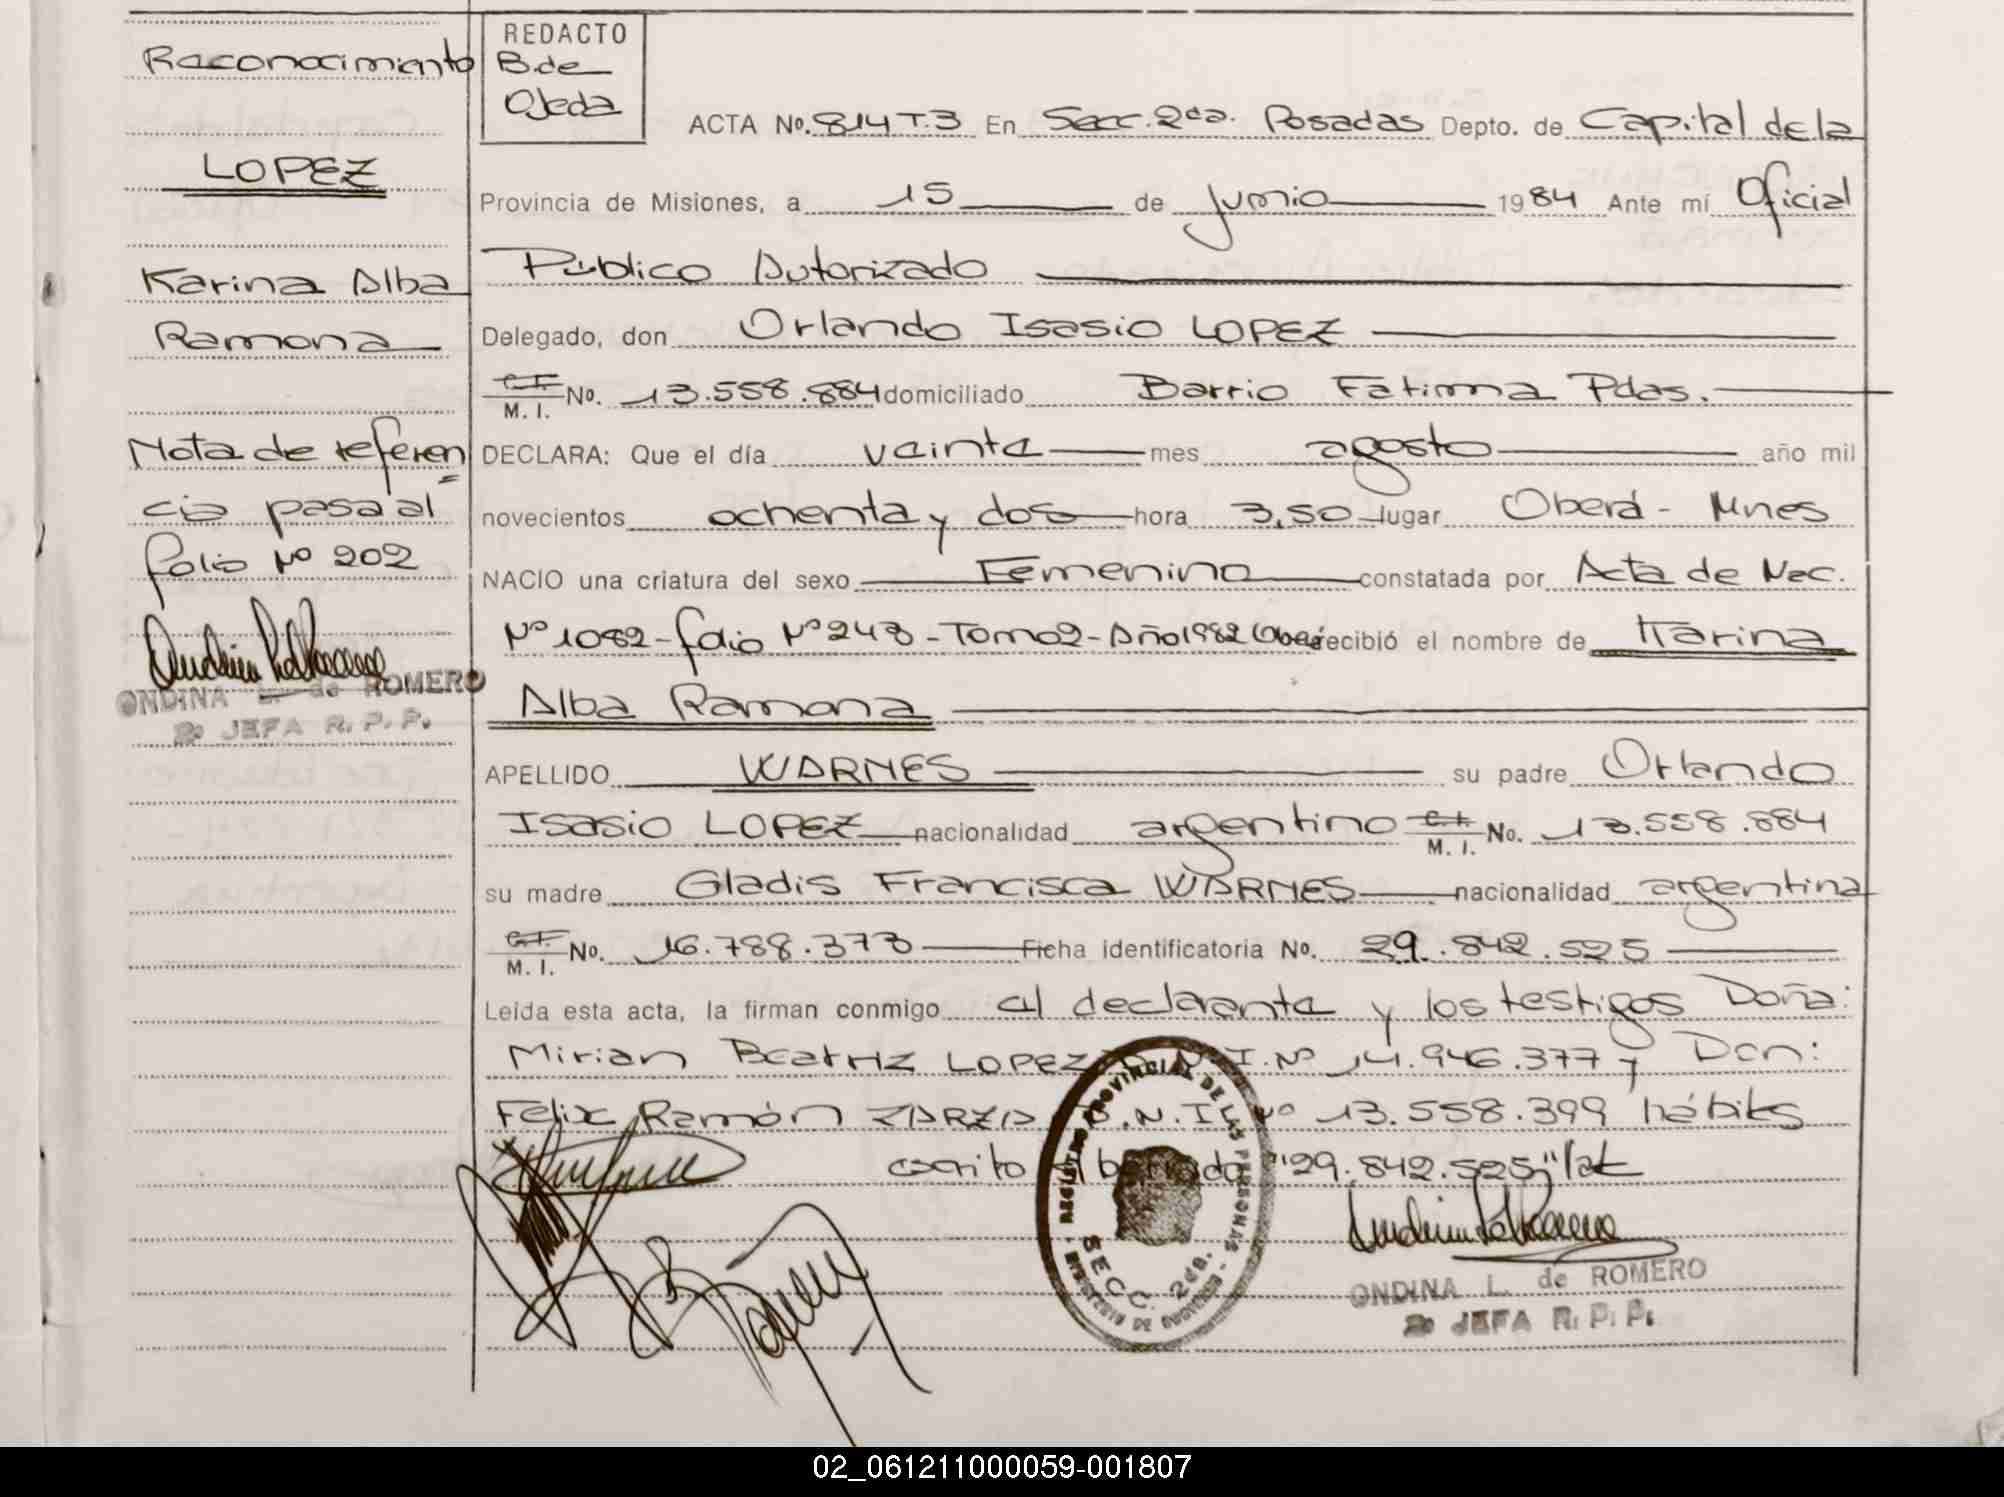 Reconocimiento
LOPEZ
Karina Alba
Ramona
Nota de referen
cia pasa al
folio Nº 202
ONDINA L. de ROMERO
2º JEFA R. P. P.
REDACTO
B. de
Ojeda
ACTA No. 814 T.3 En Secc. 2da. Posadas Depto. de Capital de la
Provincia de Misiones, a 15 de junio 1984 Ante mí Oficial
Público Autorizado
Delegado, don Orlando Isasio LOPEZ
C.I. M. I. No. 13.558.884 domiciliado Barrio Fatima Pdas.
DECLARA: Que el día veinte mes agosto año mil
novecientos ochenta y dos hora 3,50 lugar Oberá - Mnes
NACIO una criatura del sexo Femenino constatada por Acta de Nac.
Nº 1082 - folio Nº 243 - Tomo 2 - Año 1982 (Oberá recibió el nombre de Karina
Alba Ramona
APELLIDO WARNES su padre Orlando
Isasio LOPEZ nacionalidad argentino C.I. M. I. No. 13.558.884
su madre Gladis Francisca WARNES nacionalidad argentina
C.I. M. I. No. 16.788.373 Ficha identificatoria No. 29.842.525
Leída esta acta, la firman conmigo el declarante y los testigos Doña:
Mirian Beatriz LOPEZ D.N.I. Nº 14.946.377 y Don:
Felix Ramón ZARZA D.N.I. Nº 13.558.399 hábiles
escrito s/ borrado "29.842.525,"
REGISTRO PROVINCIAL DE LAS PERSONAS
MINISTERIO DE GOBIERNO
SECC. 2da.
ONDINA L. de ROMERO
2º JEFA R. P. P.
02_061211000059-001807